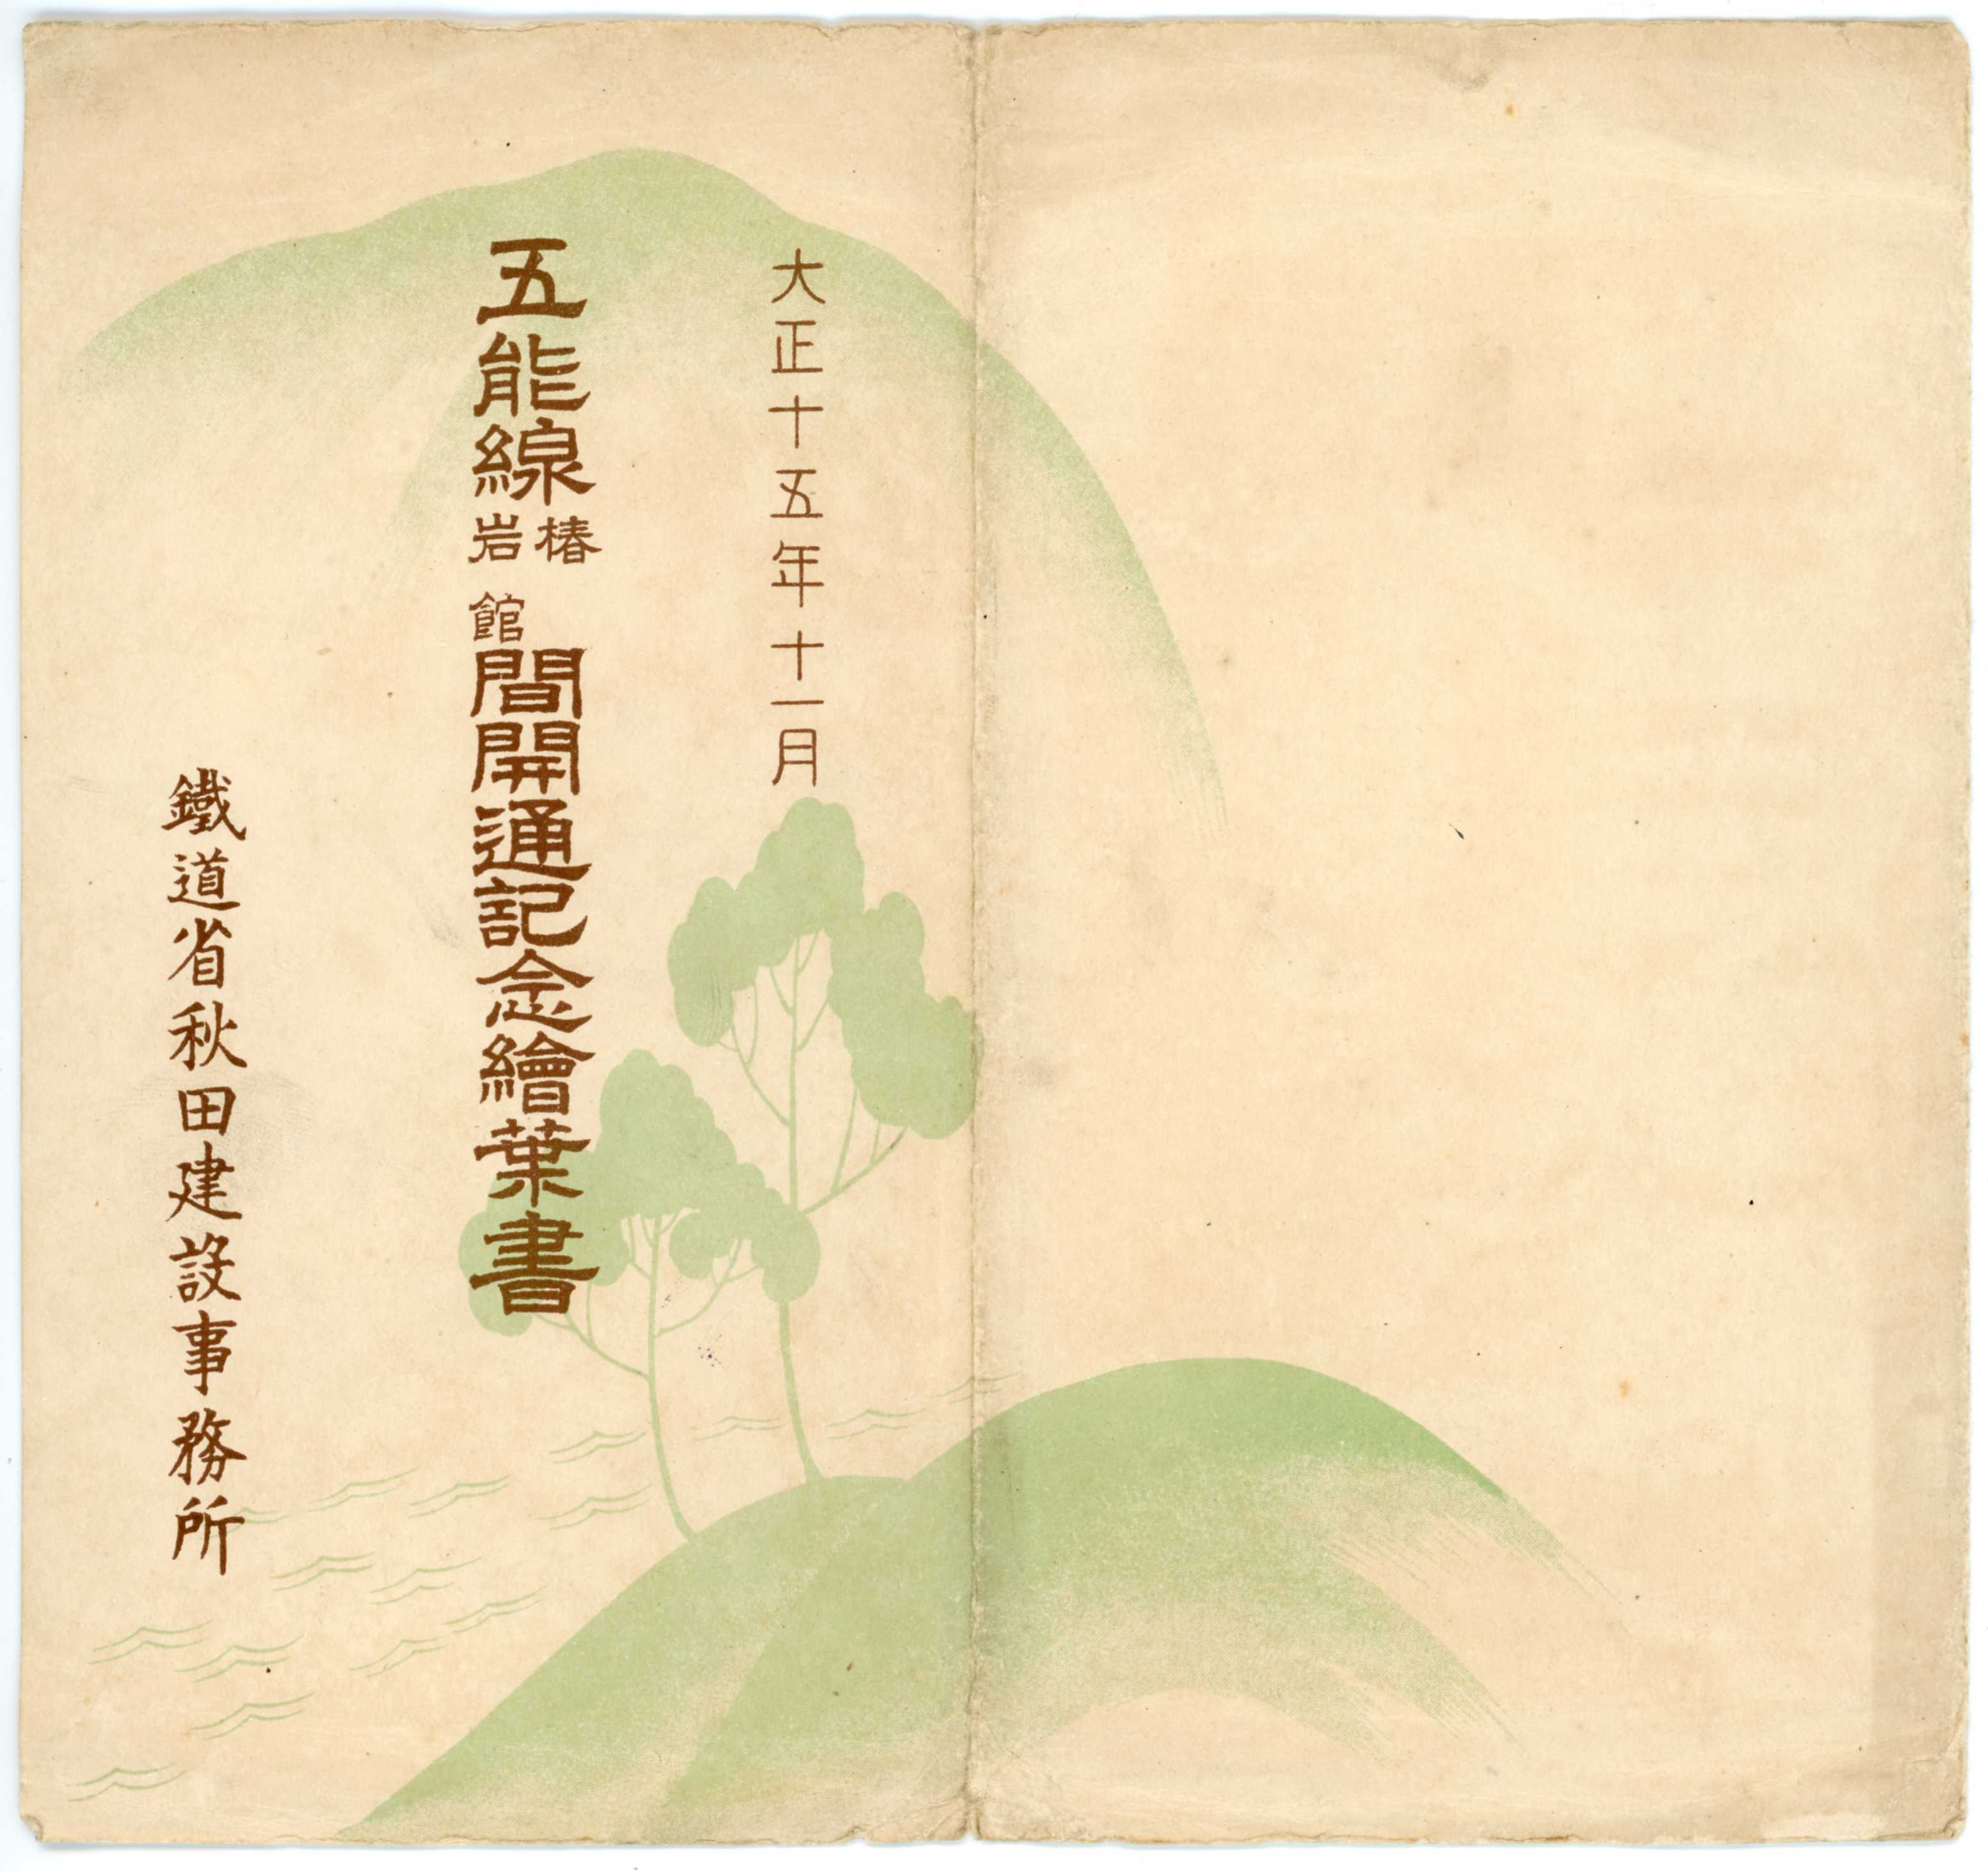 大正十五年十一月
五能線椿岩館間開通記念繪葉書
鐵道省秋田建設事務所